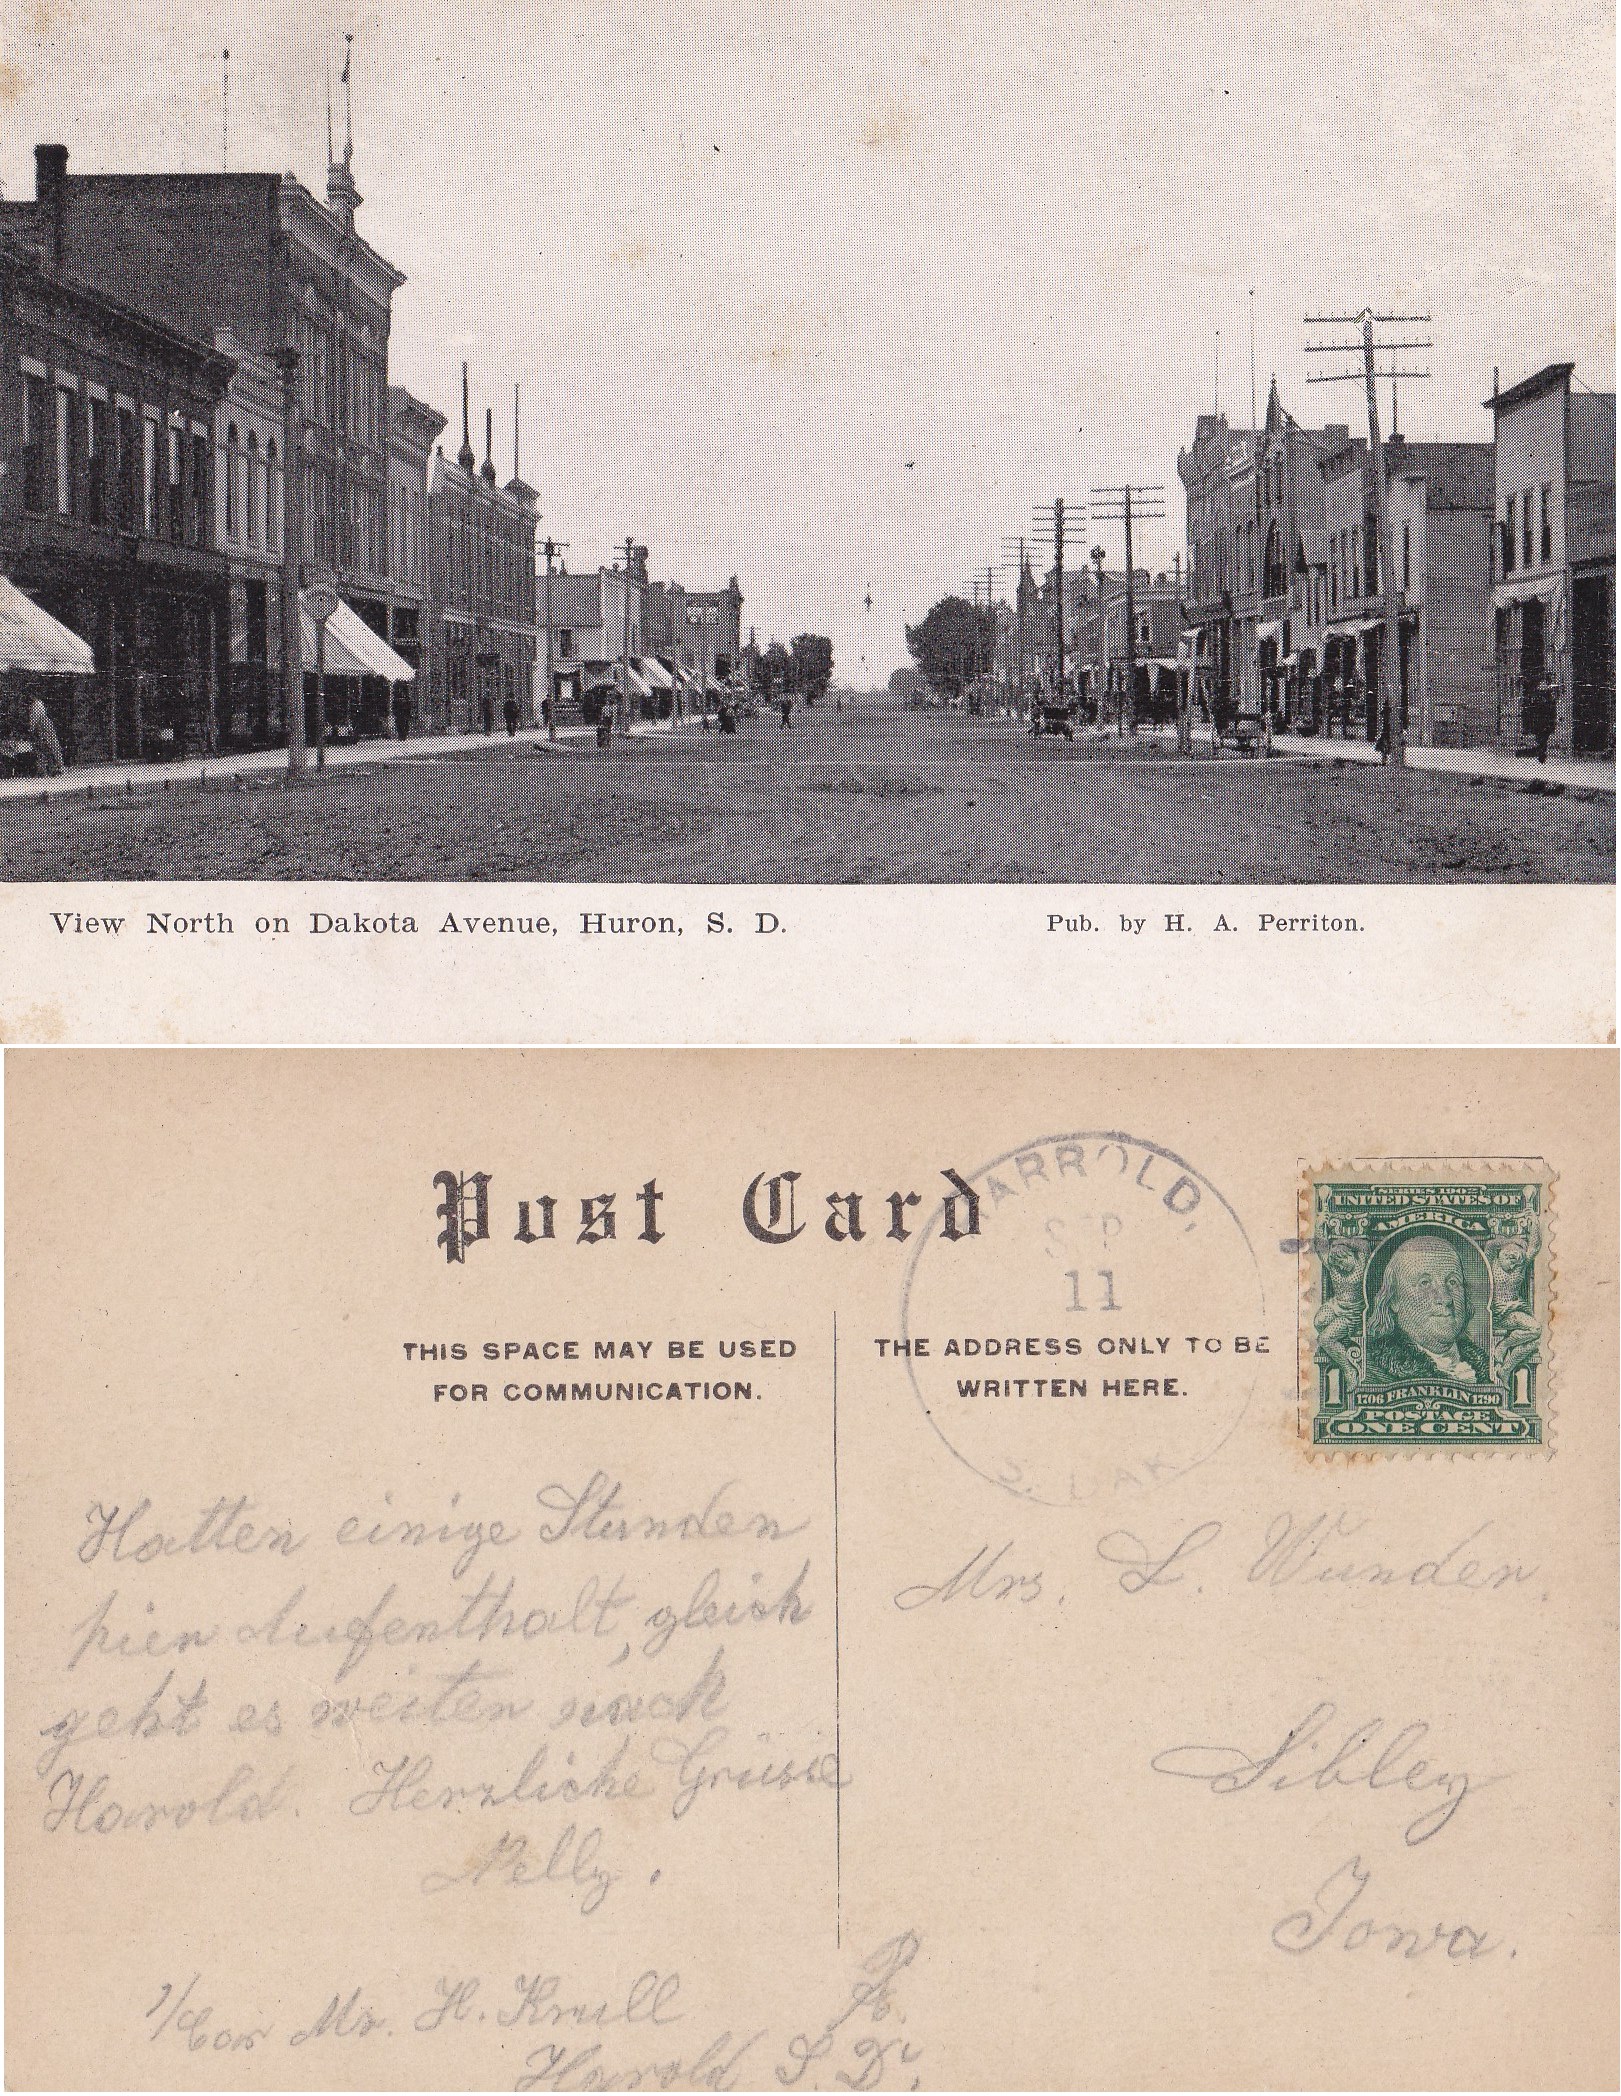 View North on Dakota Avenue, Huron, S. D.
Pub. by H. A. Perriton.
Post Card
THIS SPACE MAY BE USED
FOR COMMUNICATION.
THE ADDRESS ONLY TO BE
WRITTEN HERE.
HARROLD,
SEP
11
S. DAK
SERIES 1902
UNITED STATES OF
AMERICA
1 1706 FRANKLIN 1790 1
POSTAGE
ONE CENT
Hatten einige Stunden
hier Aufenthalt, gleich
geht es weiter nach
Harold. Herzliche Grüsse
Nelly.
Mr. H. Krull
Harold S. D.
Mrs. L. Wunder.
Sibley
Iowa.